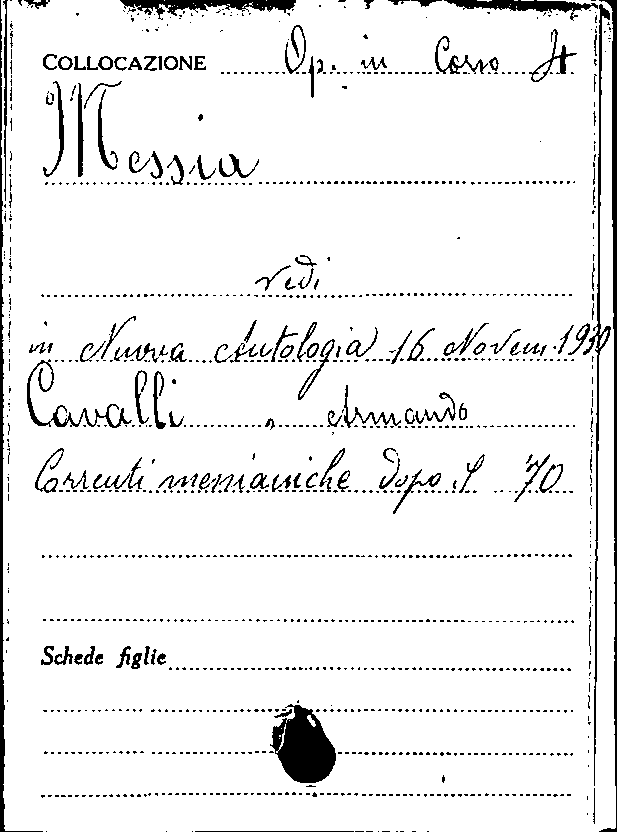 COLLOCAZIONE Op. in Corso It
Messia
vedi
in Nuova Antologia 16 Novem. 1930
Cavalli, Armando
Correnti messianiche dopo il '70
Schede figlie